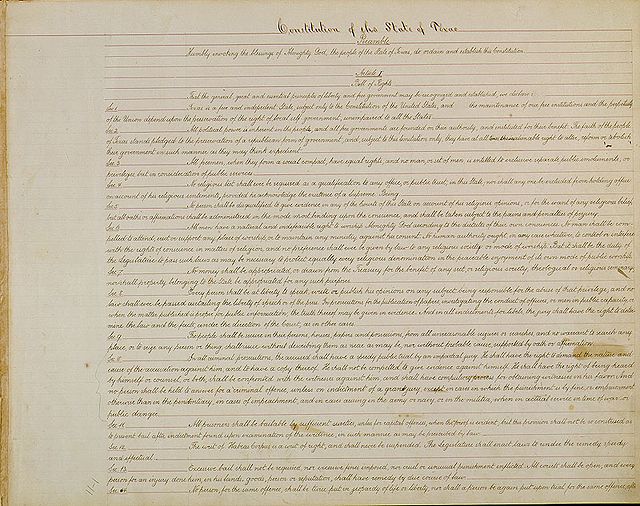 Constitution of the State of Texas
Preamble
Humbly invoking the blessings of Almighty God, the people of the State of Texas, do ordain and establish this Constitution
Article 1
Bill of Rights
That the general, great and essential principles of liberty and free government may be recognized and established, we declare:
Sec. 1 Texas is a free and independent State, subject only to the Constitution of the United States, and the maintenance of our free institutions and the perpetuity
of the Union depend upon the preservation of the right of local self-government, unimpaired to all the States.
Sec. 2 All political power is inherent in the people, and all free governments are founded on their authority, and instituted for their benefit. The faith of the people
of Texas stands pledged to the preservation of a republican form of government, and, subject to this limitation only, they have at all times the inalienable right to alter, reform or abolish
their government in such manner as they may think expedient.
Sec. 3 All freemen, when they form a social compact, have equal rights, and no man, or set of men, is entitled to exclusive separate public emoluments, or
privileges but in consideration of public services.
Sec. 4 No religious test shall ever be required as a qualification to any office, or public trust, in this State, nor shall any one be excluded from holding office
on account of his religious sentiments, provided he acknowledge the existence of a Supreme Being.
Sec. 5 No person shall be disqualified to give evidence in any of the Courts of this State on account of his religious opinions, or for the want of any religious belief,
but all oaths or affirmations shall be administered in the mode most binding upon the conscience, and shall be taken subject to the pains and penalties of perjury.
Sec. 6 All men have a natural and indefeasible right to worship Almighty God according to the dictates of their own consciences. No man shall be com-
pelled to attend, erect or support any place of worship, or to maintain any ministry against his consent. No human authority ought, in any case whatever, to control or interfere
with the rights of conscience in matters of religion, and no preference shall ever be given by law to any religious society or mode of worship. But it shall be the duty of
the Legislature to pass such laws as may be necessary to protect equally every religious denomination in the peaceable enjoyment of its own mode of public worship.
Sec. 7 No money shall be appropriated, or drawn from the Treasury for the benefit of any sect, or religious society, theological or religious seminary
nor shall property belonging to the State be appropriated for any such purposes.
Sec. 8 Every person shall be at liberty to speak, write or publish his opinions on any subject, being responsible for the abuse of that privilege; and no
law shall ever be passed curtailing the liberty of speech or of the press. In prosecutions for the publication of papers, investigating the conduct of officers, or men in public capacity, or
when the matter published is proper for public information, the truth thereof may be given in evidence. And in all indictments for libels, the jury shall have the right to deter-
mine the law and the facts, under the direction of the Court, as in other cases.
Sec. 9 The people shall be secure in their persons, houses, papers and possessions, from all unreasonable seizures or searches, and no warrant to search any
place, or to seize any person or thing, shall issue without describing them as near as may be, nor without probable cause, supported by oath or affirmation.
In all criminal prosecutions, the accused shall have a speedy public trial by an impartial jury. He shall have the right to demand the nature and
cause of the accusation against him, and to have a copy thereof. He shall not be compelled to give evidence against himself. He shall have the right of being heard
by himself or counsel, or both, shall be confronted with the witnesses against him, and shall have compulsory process for obtaining witnesses in his favor. And
no person shall be held to answer for a criminal offense, unless on indictment of a grand jury, except in cases in which the punishment is by fine, or imprisonment
otherwise than in the penitentiary, in cases of impeachment, and in cases arising in the army or navy, or in the militia, when in actual service in time of war or
public danger.
Sec. 11 All prisoners shall be bailable by sufficient sureties, unless for capital offenses, when the proof is evident; but this provision shall not be so construed as
to prevent bail after indictment found upon examination of the evidence, in such manner as may be prescribed by law.
Sec. 12 The writ of Habeas Corpus is a writ of right, and shall never be suspended. The Legislature shall enact laws to render the remedy speedy
and effectual.
Sec. 13 Excessive bail shall not be required, nor excessive fines imposed, nor cruel or unusual punishment inflicted. All courts shall be open, and every
person for an injury done him, in his lands, goods, person or reputation, shall have remedy by due course of law.
No person, for the same offense, shall be twice put in jeopardy of life or liberty, nor shall a person be again put upon trial, for the same offense, after